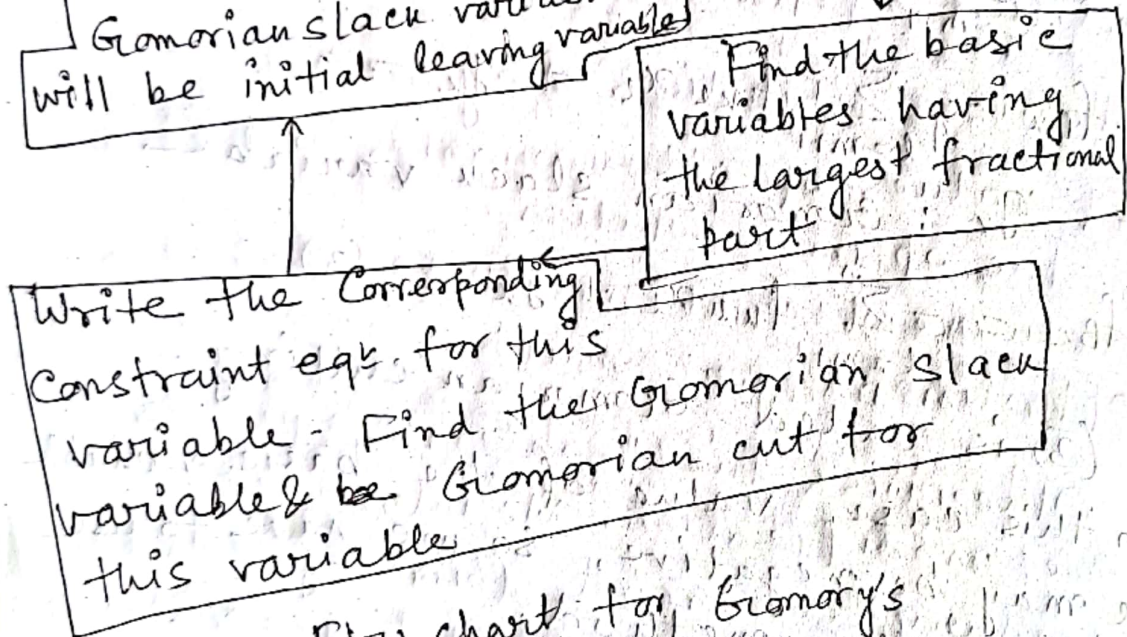 Gomorian slack
will be initial leaving variable
Find the basic
variables having
the largest fractional
part
Write the Corresponding
Constraint eqn. for this
variable - Find the Gomorian slack
variable & be Gomorian cut for
this variable
chart for Gomory's